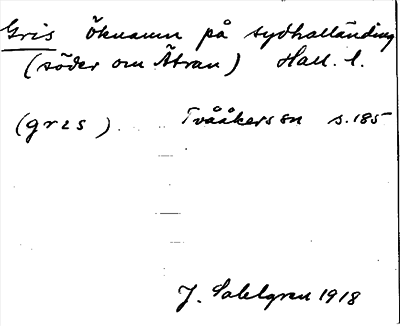 Gris Öknamn på sydhallänning
(söder om Ätran) Hall. l.
(gris). Tvååkers sn s. 185
J. Sahlgren 1918